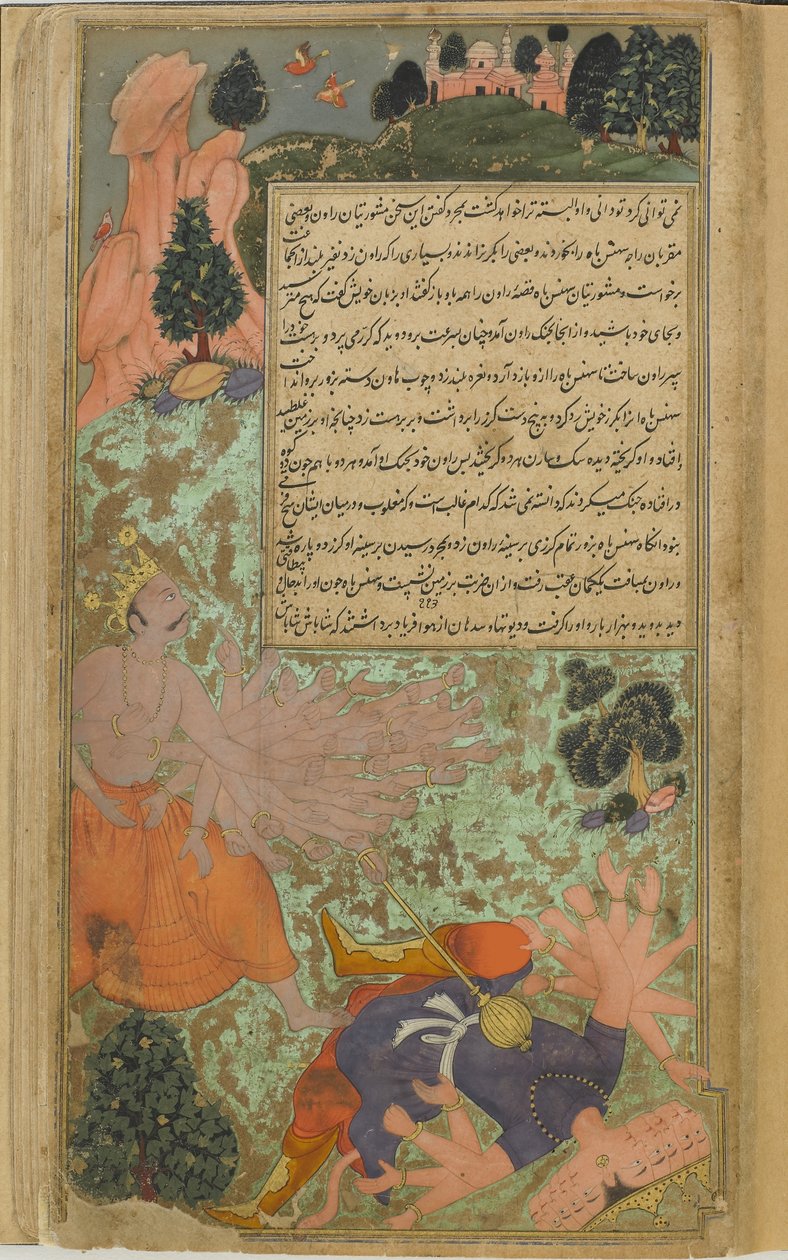 نمی توانی کرد تو دانی و او البته ترا خواهد کشت بمجرد گفتن این سخن مشورتیان راون و بعضی
مقربان راجه سهنس باه را بکار دند و بعضی را بگریزاندند و بسیاری را که راون زد نفیر بلند از آنجا
برخواست و مشورتیان سهنس باه قصهٔ راون را همه باو باز گفتند او بزبان خویش گفت که هیچ
و بجای خود باشید و از آنجا بجنگ راون آمد و چنان بسرعت بر دوید که گرز می پرد و بر دست خود را
سپر راون ساخت تا سهنس باه را از و باز دارد و نعره بلند زد و چوب هاون دسته بزور برو
سهنس باه آنرا بگرز خویش رد کرد و به پنج دست گرز را برداشت و بر بر دست زد چنانچه او بر زمین غلطید
افتاد و او گریخته دیده سک و سارن هر دو گریختند پس راون خود بجنگ او آمد و هر دو با هم چون دو کوه
در افتاده جنگ میکردند که دانسته نمی شد که کدام غالب است و که مغلوب و در میان ایشان هیچ فرقی
بنود آنگاه سهنس باه بزور تمام گرزی بر سینهٔ راون زد و بمجرد رسیدن بر سینهٔ او گرز دو پاره شد
و راون بمسافت یک کمان عقب رفت و از آن ضربت بر زمین نشست و سهنس باه چون او را بدحال
دید بدوید و بهزار بازو او را گرفت و دیوتها و سدهان از هوا فریاد برداشتند که شاباش شاباش
۲۲۳